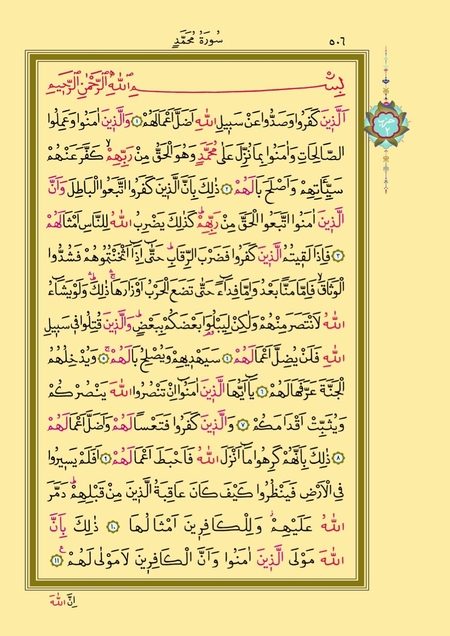 ٥٠٦ سُورَةُ مُحَمَّدٍ
بِسْمِ اللّٰهِ الرَّحْمٰنِ الرَّحِيمِ
اَلَّذِينَ كَفَرُوا وَصَدُّوا عَنْ سَبِيلِ اللّٰهِ اَضَلَّ اَعْمَالَهُمْ ﴿١﴾ وَالَّذِينَ اٰمَنُوا وَعَمِلُوا
الصَّالِحَاتِ وَاٰمَنُوا بِمَا نُزِّلَ عَلٰى مُحَمَّدٍ وَهُوَ الْحَقُّ مِنْ رَبِّهِمْۙ كَفَّرَ عَنْهُمْ
سَيِّـَٔاتِهِمْ وَاَصْلَحَ بَالَهُمْ ﴿٢﴾ ذٰلِكَ بِاَنَّ الَّذِينَ كَفَرُوا اتَّبَعُوا الْبَاطِلَ وَاَنَّ
الَّذِينَ اٰمَنُوا اتَّبَعُوا الْحَقَّ مِنْ رَبِّهِمْۜ كَذٰلِكَ يَضْرِبُ اللّٰهُ لِلنَّاسِ اَمْثَالَهُمْ
﴿٣﴾ فَاِذَا لَقِيتُمُ الَّذِينَ كَفَرُوا فَضَرْبَ الرِّقَابِۜ حَتّٰٓى اِذَٓا اَثْخَنْتُمُوهُمْ فَشُدُّوا
الْوَثَاقَۙ فَاِمَّا مَنًّا بَعْدُ وَاِمَّا فِدَٓاءً حَتّٰى تَضَعَ الْحَرْبُ اَوْزَارَهَاۚ ذٰلِكَۜ وَلَوْ يَشَٓاءُ
اللّٰهُ لَانْتَصَرَ مِنْهُمْ وَلٰكِنْ لِيَبْلُوَا۬ بَعْضَكُمْ بِبَعْضٍۜ وَالَّذِينَ قُتِلُوا فِي سَبِيلِ
اللّٰهِ فَلَنْ يُضِلَّ اَعْمَالَهُمْ ﴿٤﴾ سَيَهْدِيهِمْ وَيُصْلِحُ بَالَهُمْۚ ﴿٥﴾ وَيُدْخِلُهُمُ
الْجَنَّةَ عَرَّفَهَا لَهُمْ ﴿٦﴾ يَٓا اَيُّهَا الَّذِينَ اٰمَنُٓوا اِنْ تَنْصُرُوا اللّٰهَ يَنْصُرْكُمْ
وَيُثَبِّتْ اَقْدَامَكُمْ ﴿٧﴾ وَالَّذِينَ كَفَرُوا فَتَعْسًا لَهُمْ وَاَضَلَّ اَعْمَالَهُمْ
﴿٨﴾ ذٰلِكَ بِاَنَّهُمْ كَرِهُوا مَٓا اَنْزَلَ اللّٰهُ فَاَحْبَطَ اَعْمَالَهُمْ ﴿٩﴾ اَفَلَمْ يَسِيرُوا
فِي الْاَرْضِ فَيَنْظُرُوا كَيْفَ كَانَ عَاقِبَةُ الَّذِينَ مِنْ قَبْلِهِمْۜ دَمَّرَ
اللّٰهُ عَلَيْهِمْۘ وَلِلْكَافِرِينَ اَمْثَالُهَا ﴿١٠﴾ ذٰلِكَ بِاَنَّ
اللّٰهَ مَوْلَى الَّذِينَ اٰمَنُوا وَاَنَّ الْكَافِرِينَ لَا مَوْلٰى لَهُمْ۟ ﴿١١﴾
اِنَّ اللّٰهَ